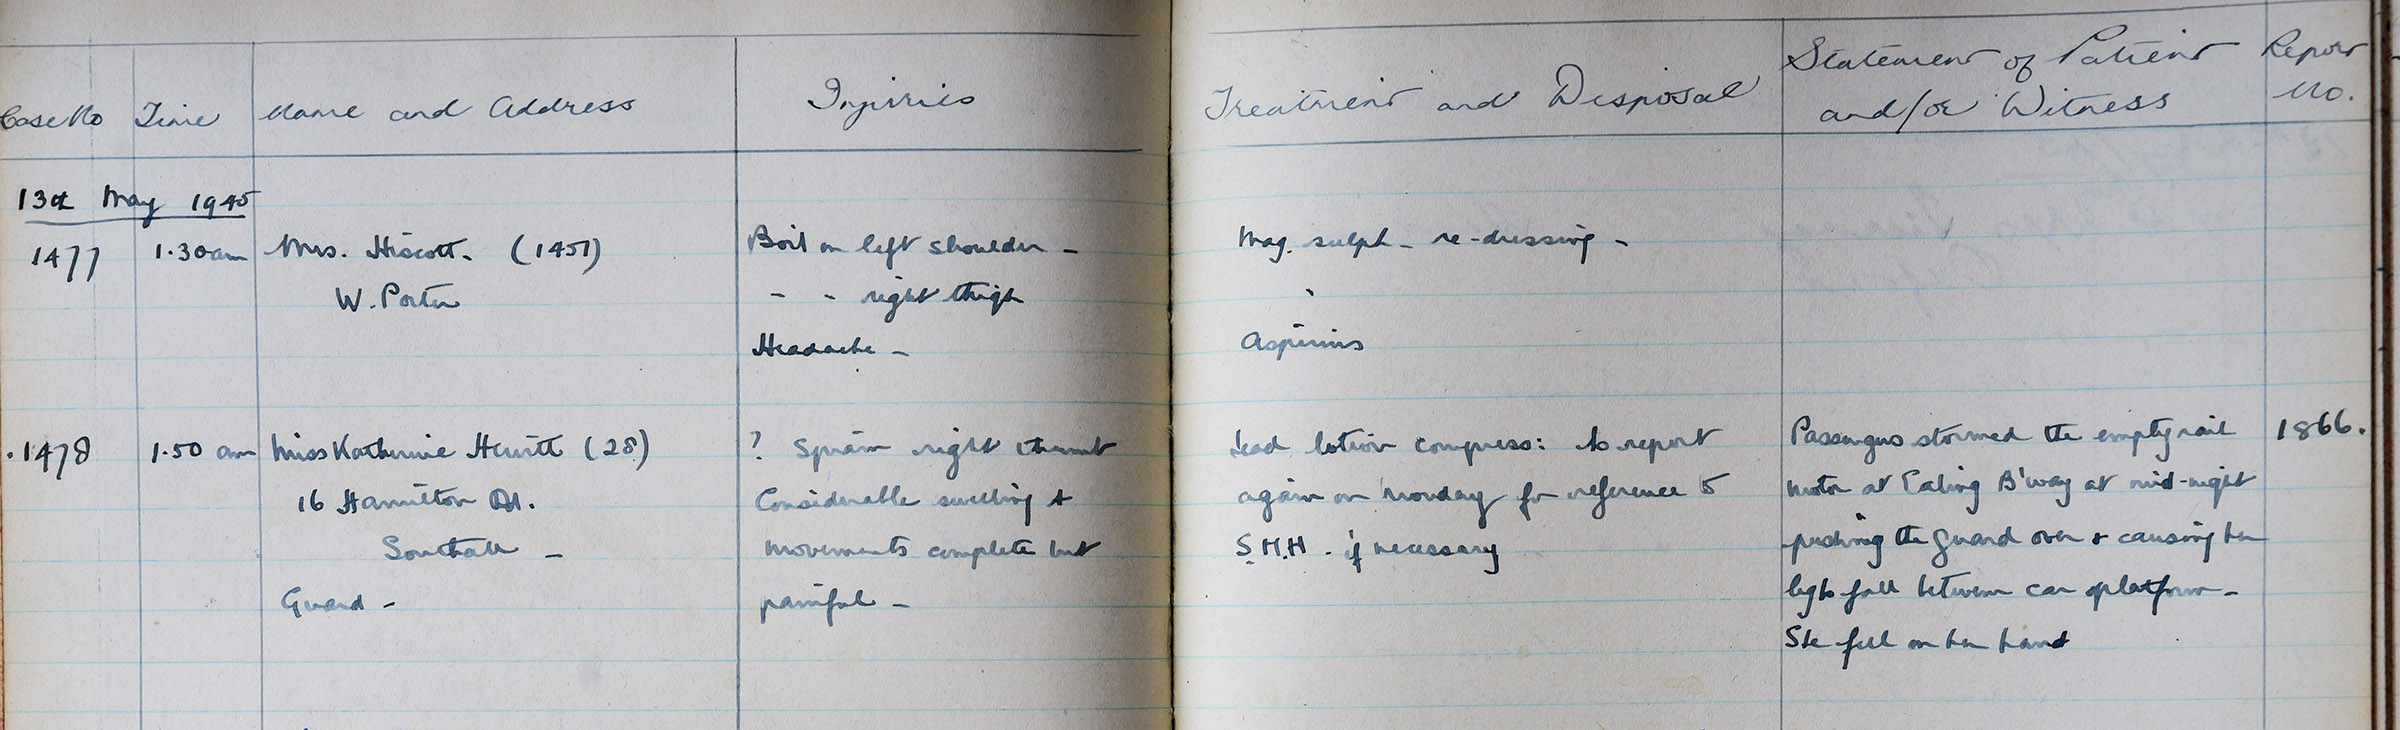 Case No Time Name and Address Injuries Treatment and Disposal Statement of Patient and/or Witness Report No.
13th May 1945
1477 1.30am Mrs. Hiscott. (1457) Boil on left shoulder - Mag. sulph - re-dressing -
W. Porter - - right thigh "
Headache - Aspirins
1478 1.50 am Miss Katherine Hewitt (28) ? Sprain right thumb Lead lotion compress: to report Passengers stormed the empty rail 1866.
16 Hamilton Rd. Considerable swelling & again on Monday for reference to motor at Ealing B'way at mid-night
Southall - movements complete but S.M.H. if necessary pushing the guard over & causing her
Guard - painful - legs fall between car & platform -
She fell on her hand